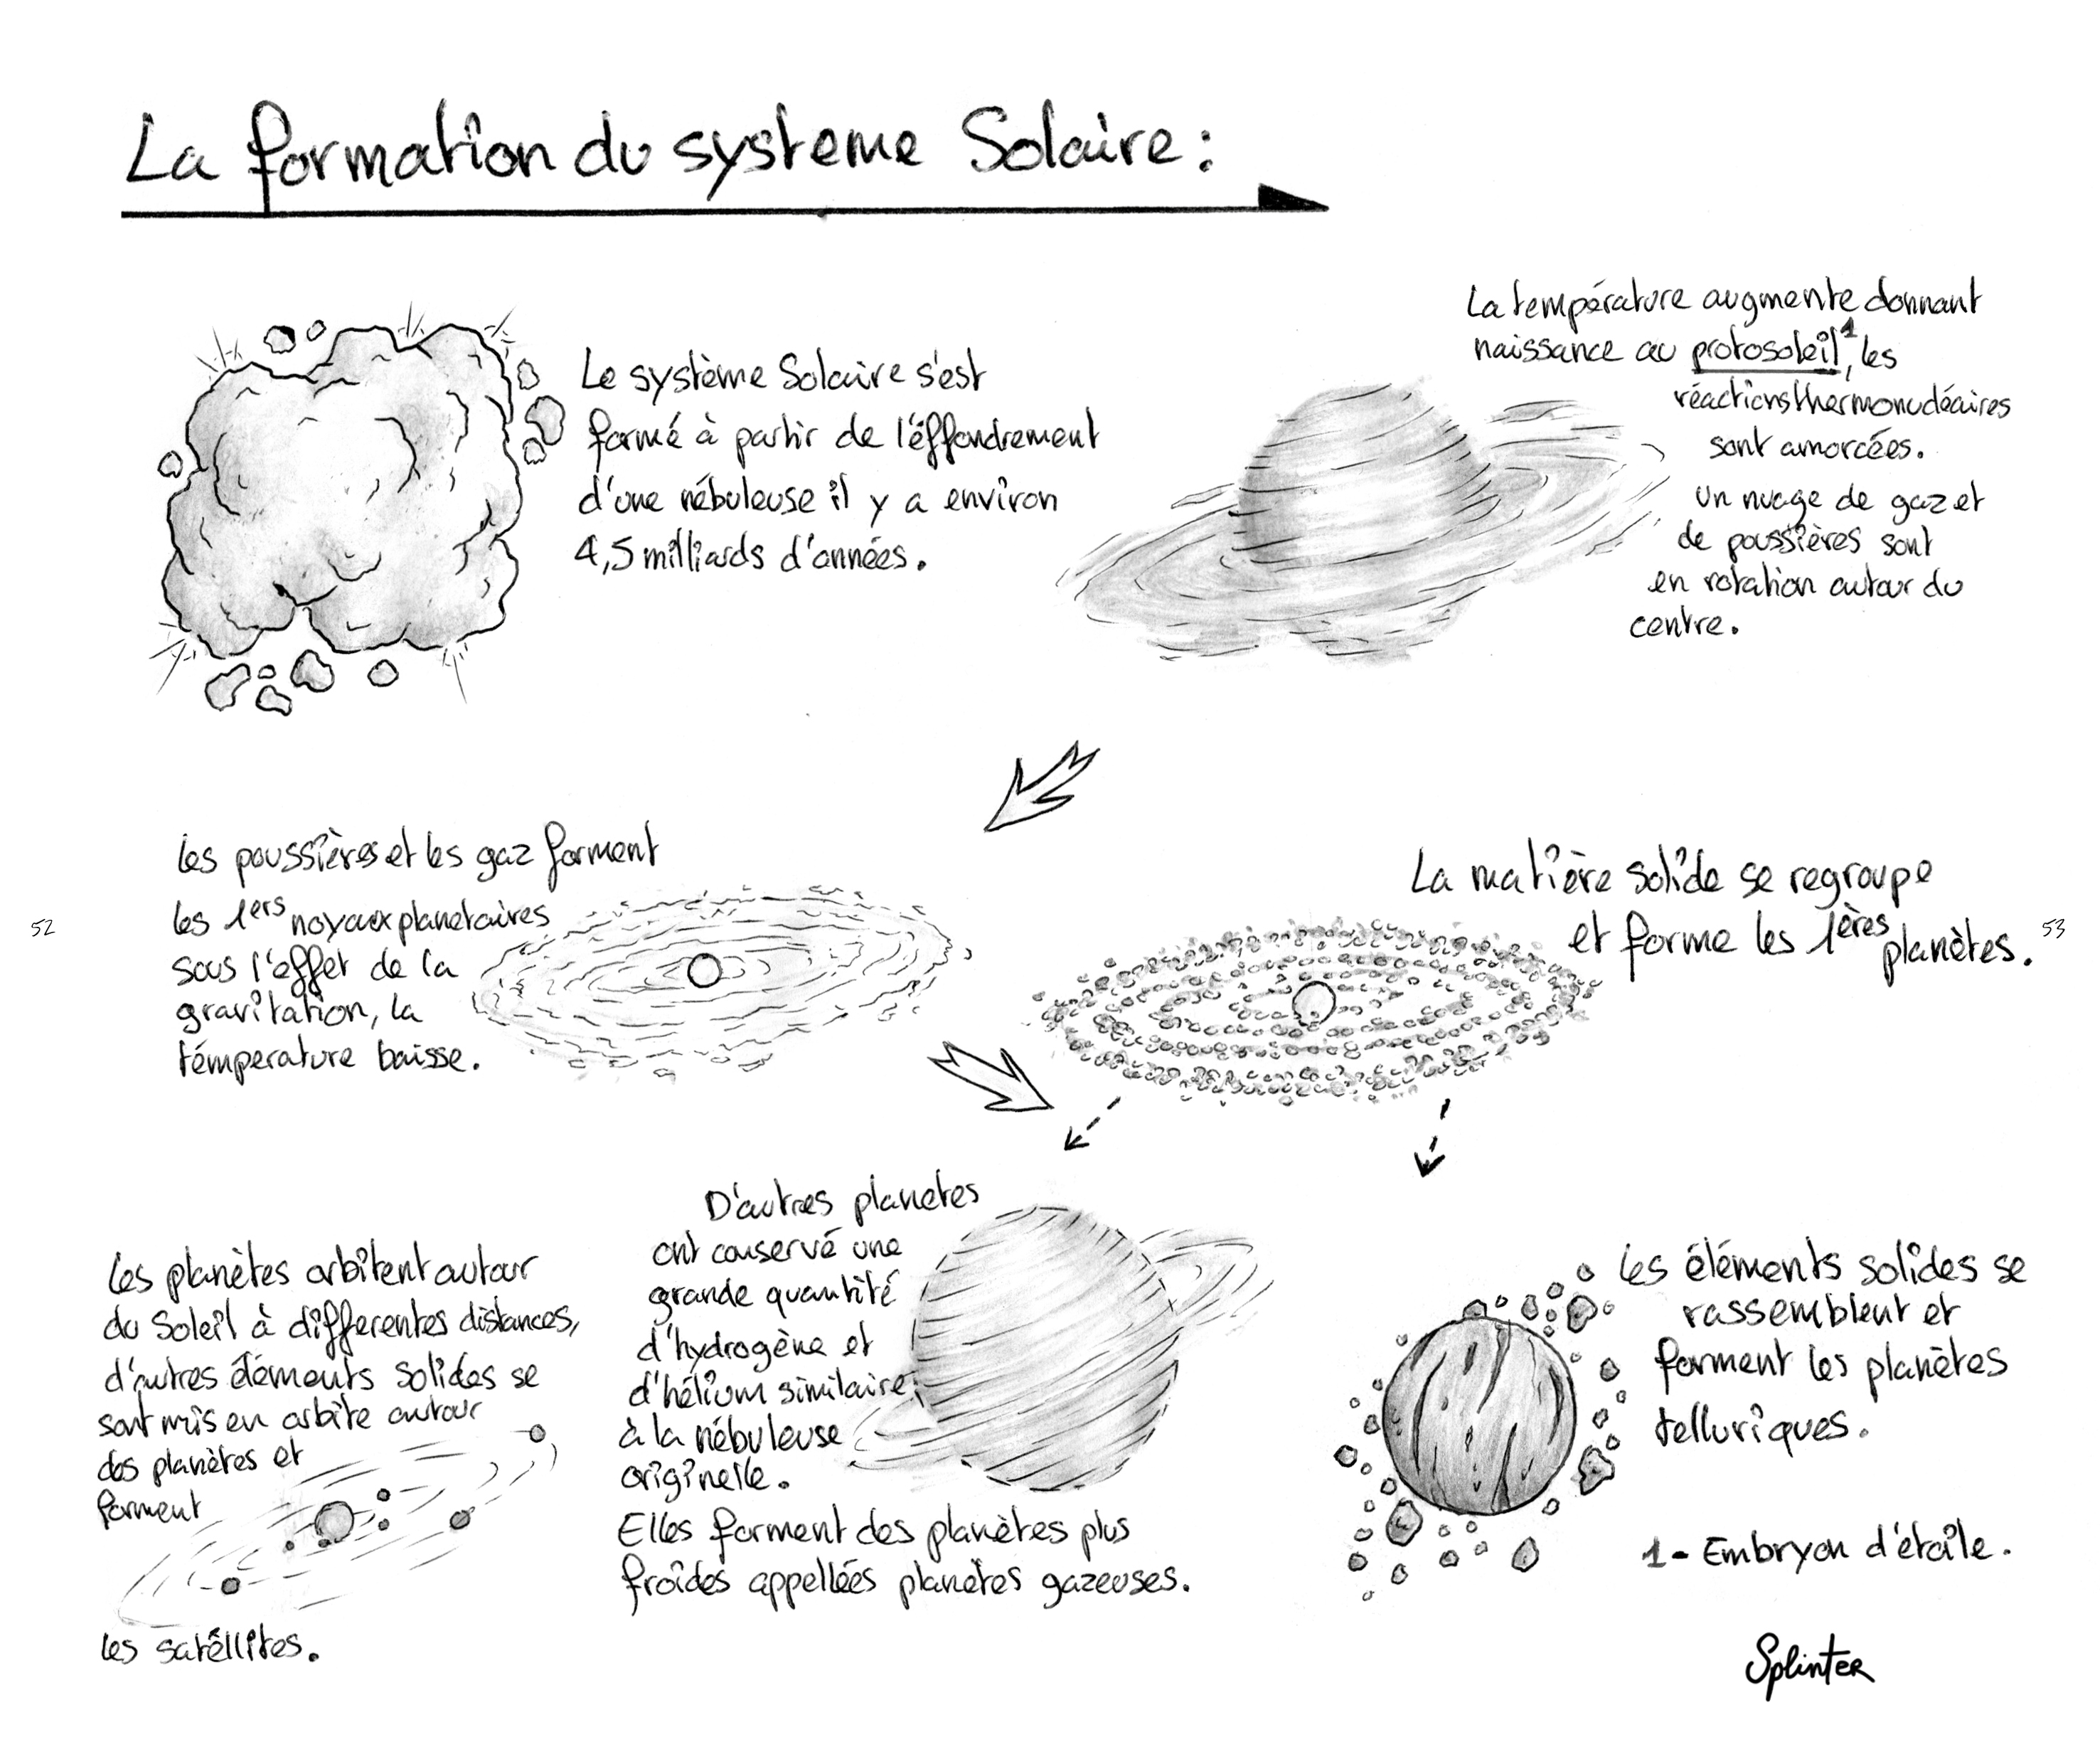 La formation du systeme Solaire :
Le système Solaire s'est
formé à partir de l'éffondrement
d'une nébuleuse il y a environ
4,5 milliards d'années.
La température augmente donnant
naissance au protosoleil¹, les
réactions thermonucléaires
sont amorcées.
un nuage de gaz et
de poussières sont
en rotation autour du
centre.
Les poussières et les gaz forment
les 1ers noyaux planetaires
sous l'effet de la
gravitation, la
témperature baisse.
La matière solide se regroupe
et forme les 1ères planètes.
52
53
Les planètes orbitent autour
du Soleil à differentes distances,
d'autres éléments solides se
sont mis en orbite autour
des planètes et
forment
les satéllites.
D'autres planetes
ont conservé une
grande quantité
d'hydrogène et
d'hélium similaire
à la nébuleuse
originelle.
Elles forment des planètes plus
froides appellées planètes gazeuses.
Les éléments solides se
rassemblent et
forment les planètes
telluriques.
1- Embryon d'étoile.
Splinter